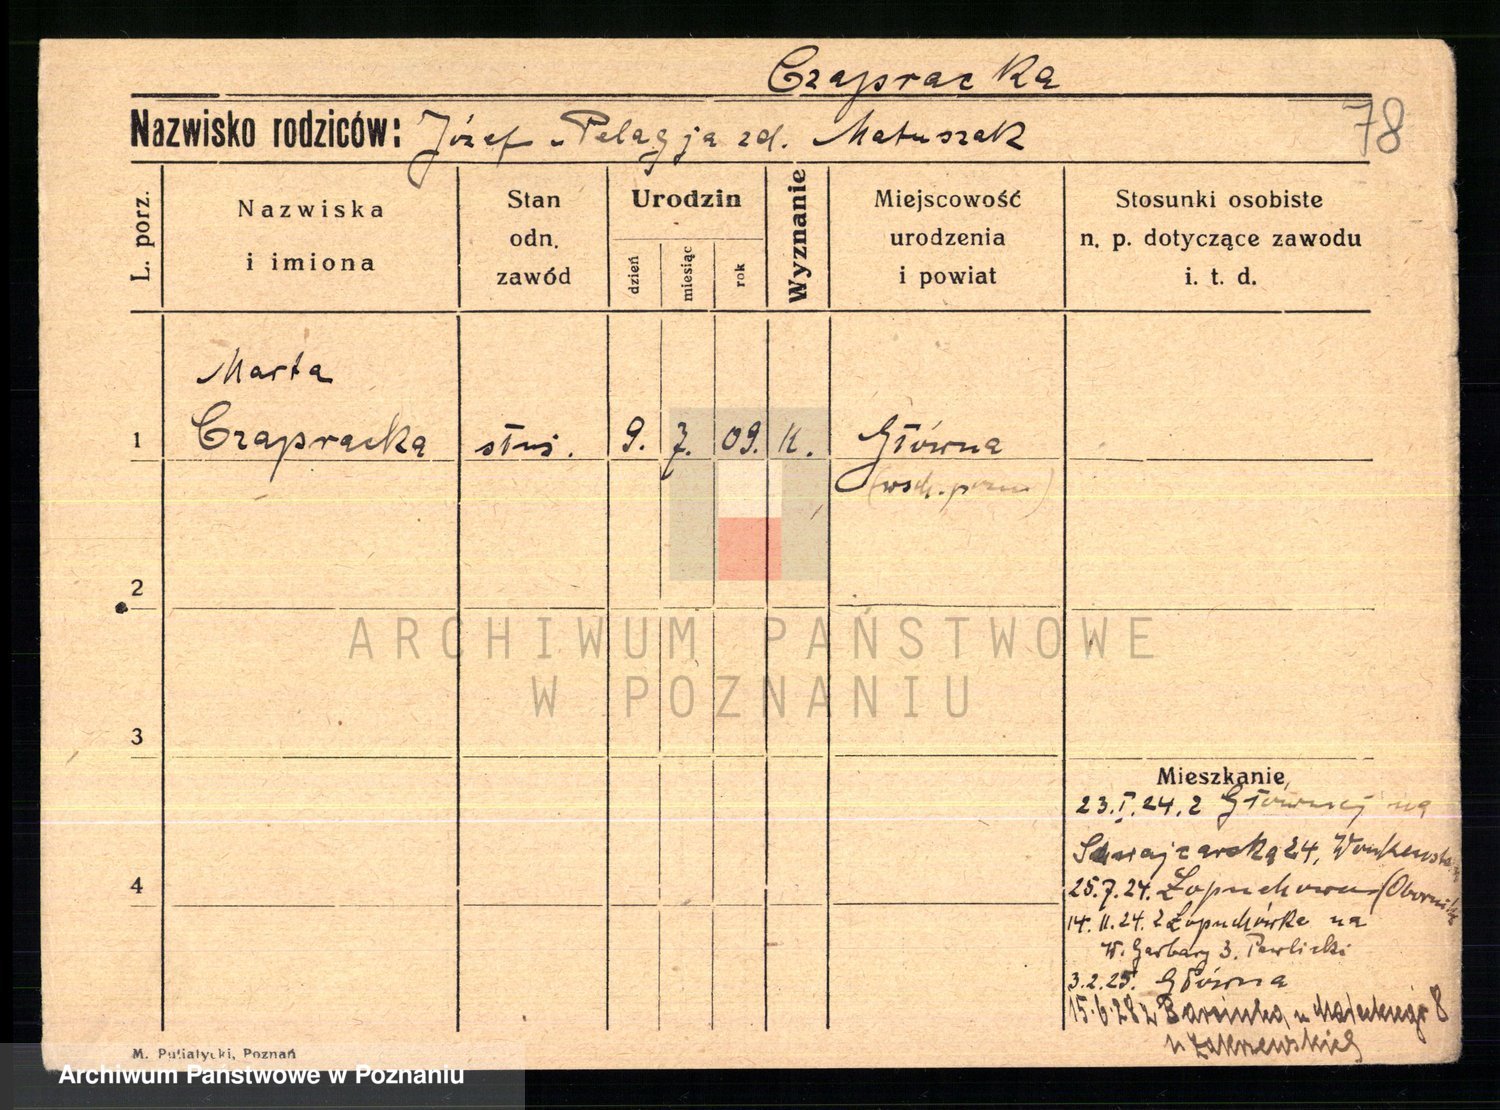 Czapracka
Nazwisko rodziców: Józef - Pelagja zd. Matuszak
78
L. porz.
Nazwiska
i imiona
Stan
odn.
zawód
Urodzin
dzień
miesiąc
rok
Wyznanie
Miejscowość
urodzenia
i powiat
Stosunki osobiste
n. p. dotyczące zawodu
i. t. d.
Marta
1 Czapracka służ. 9. 7. 09. K. Główna
(wsch. pozn)
2
3
4
ARCHIWUM PAŃSTWOWE
W POZNANIU
Mieszkanie
23.I.24. z Głównej na
24,
25.7.24. Łopuchowo (Oborniki
14.11.24. z Łopuchówka na
W. Garbary 3. Pawlicki
3.2.25. Główna
15.6.28 z 8
u Zakrzewskiej
M. Putiatycki, Poznań
Archiwum Państwowe w Poznaniu